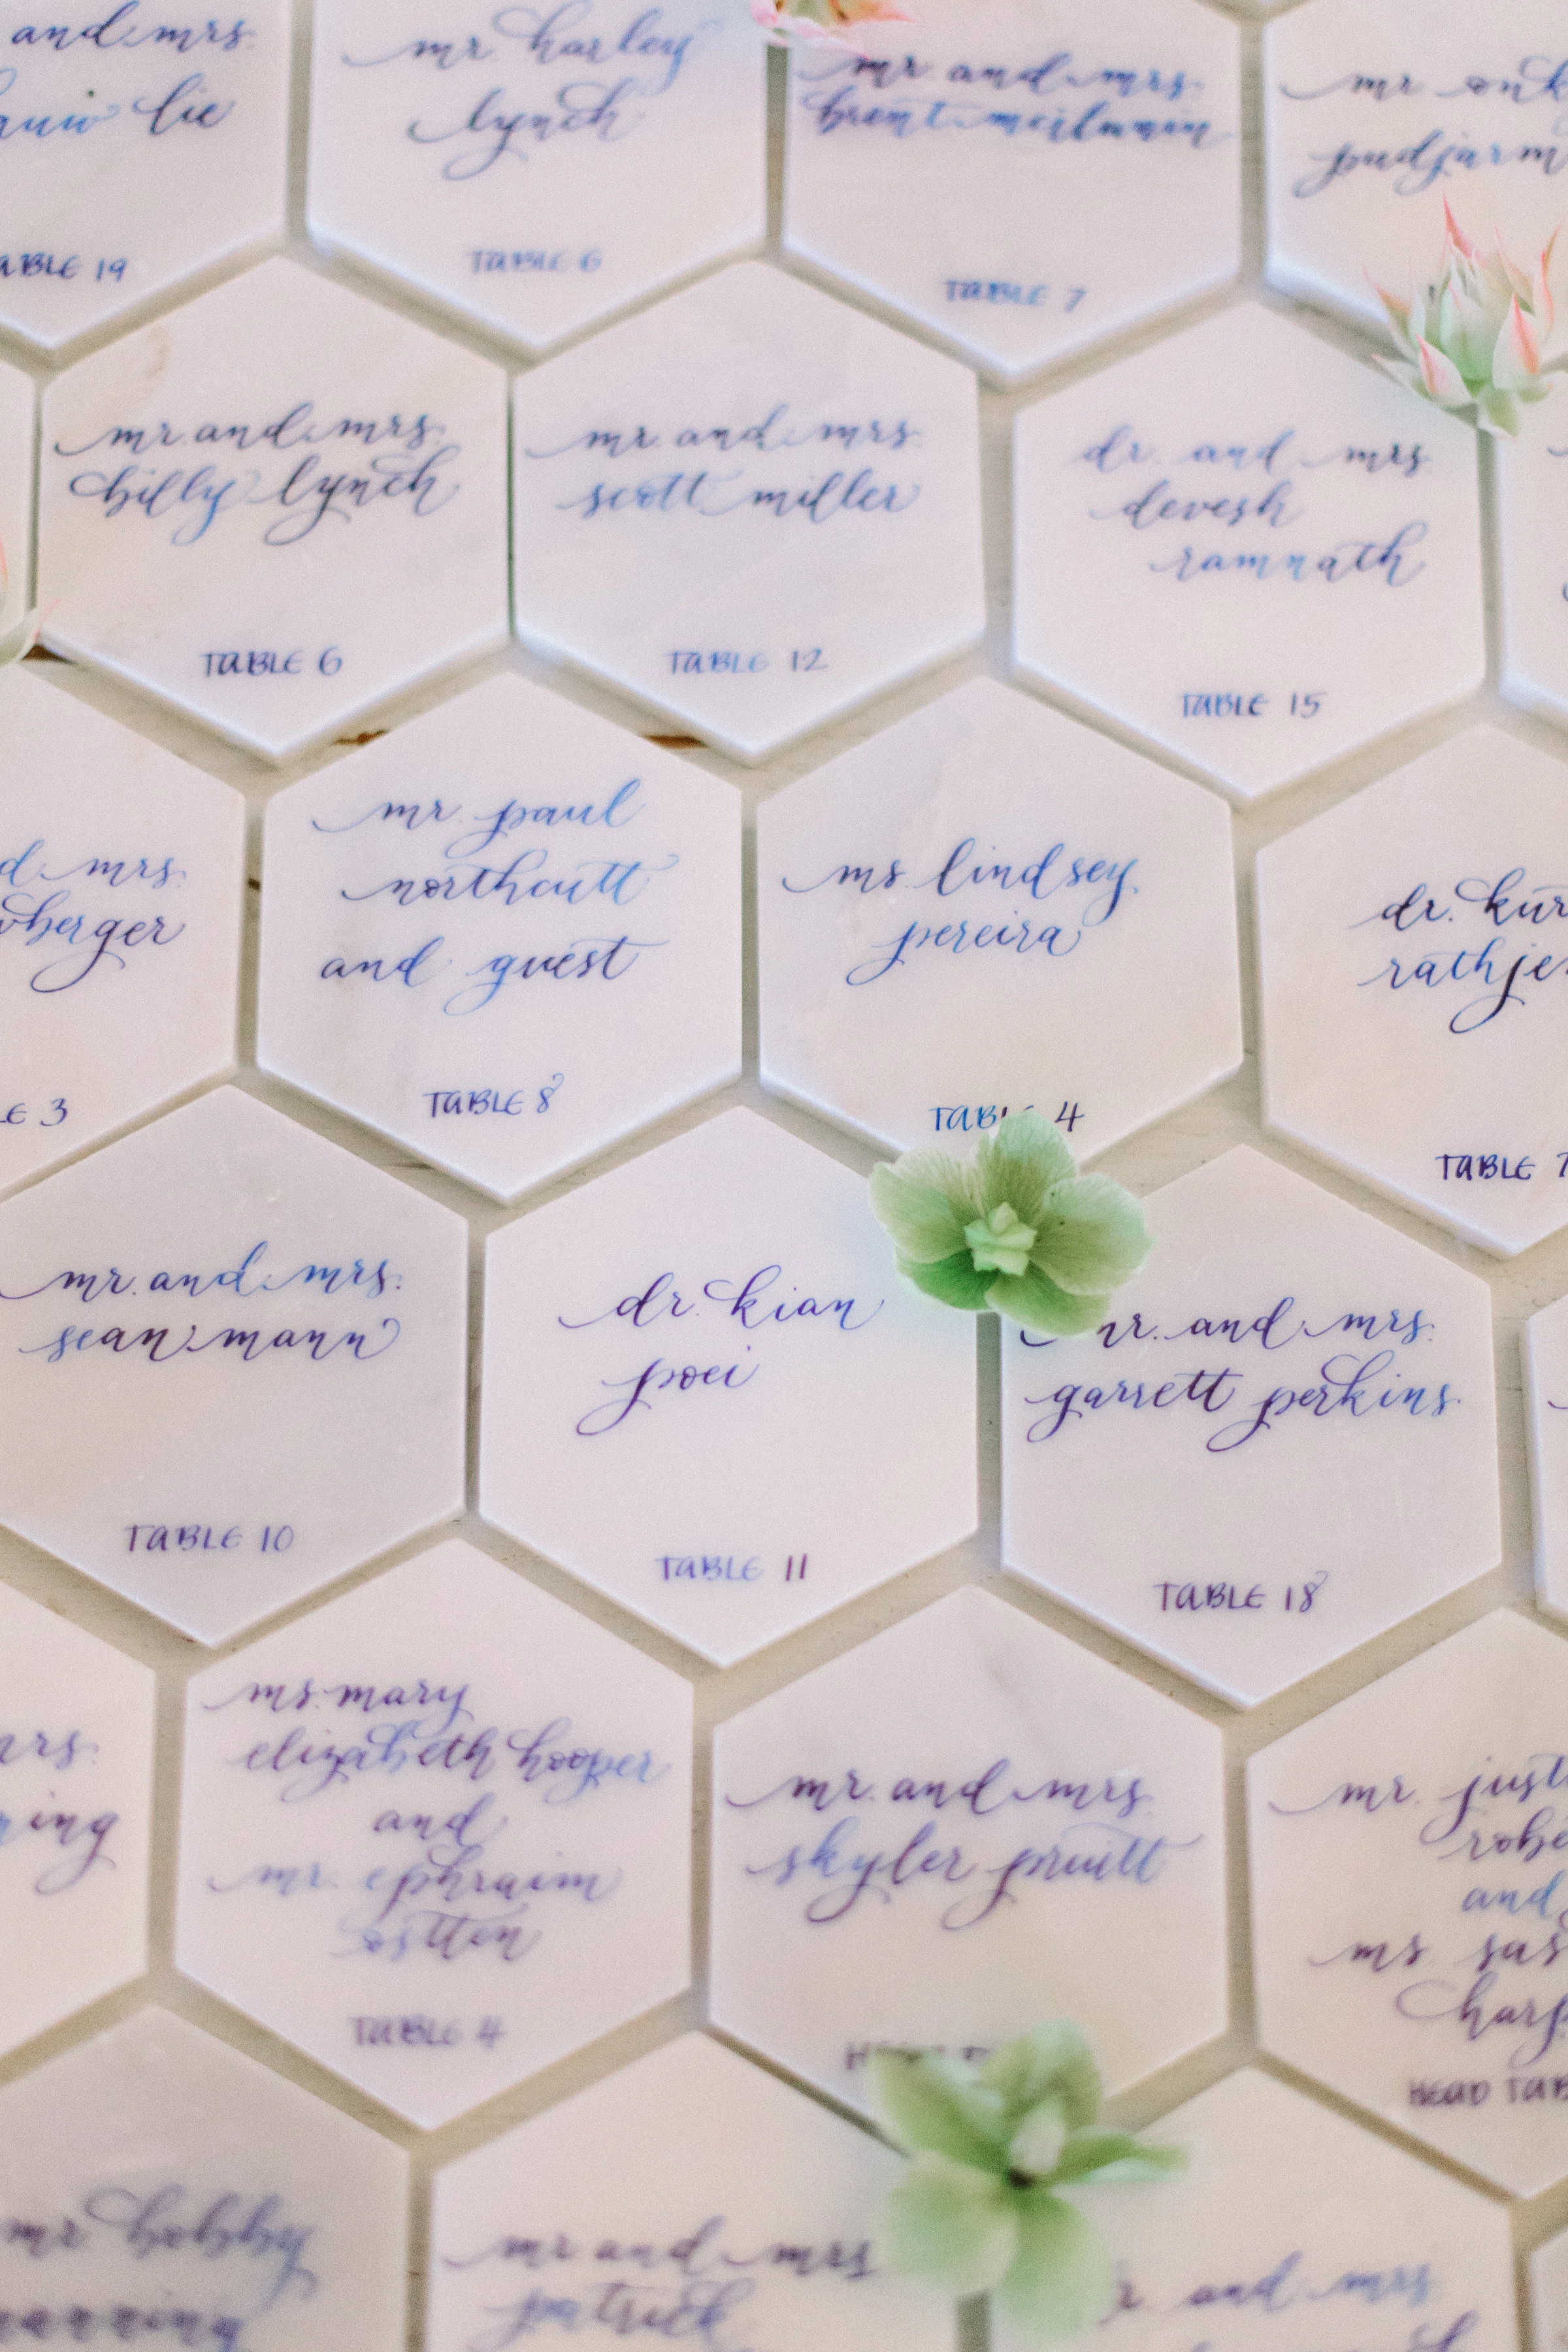 and mrs.
lie
TABLE 19
mr. harley
lynch
TABLE 6
mr and mrs.
brent
TABLE 7
mr
mr. and mrs.
billy lynch
TABLE 6
mr. and mrs.
scott miller
TABLE 12
dr. and mrs.
devesh
ramnath
TABLE 15
mrs.
berger
3
mr. paul
northcutt
and guest
TABLE 8
ms. lindsey
pereira
TABLE 4
dr.
TABLE
mr. and mrs.
sean mann
TABLE 10
dr. kian
poei
TABLE 11
and mrs.
garrett perkins
TABLE 18
ms. mary
elizabeth hooper
and
mr. ephraim
ostten
TABLE 4
mr. and mrs.
skyler pruitt
mr.
and
ms.
HEAD
mr. bobby
mr and mrs
patrick
and mrs